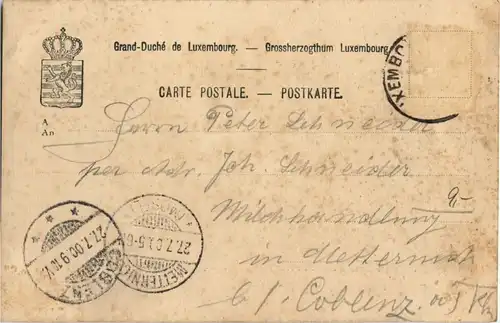 Grand-Duché de Luxembourg. — Grossherzogthum Luxemburg.
CARTE POSTALE. — POSTKARTE.
A
An
Herrn Peter Schneider
per Adr. Joh. Schneider
Milchhandlung
in Metternich
b/ Coblenz
METTERNICH
COBLENZ
27.7.00